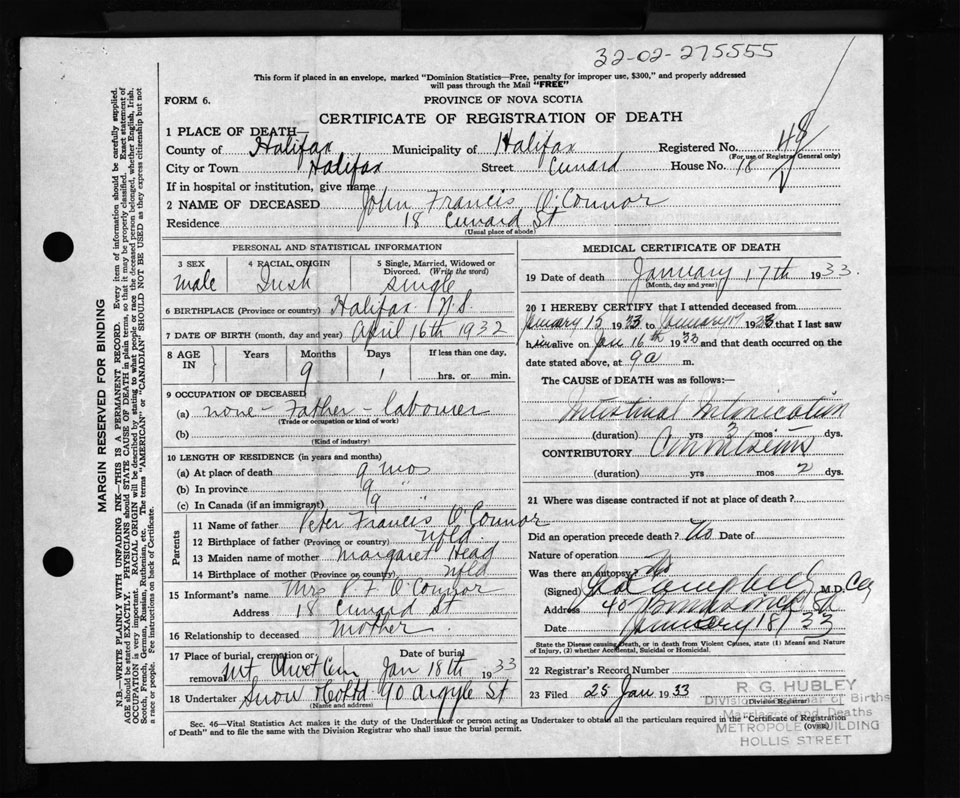 32-02-275555
This form if placed in an envelope, marked "Dominion Statistics—Free, penalty for improper use, $300," and properly addressed
will pass through the Mail "FREE"
FORM 6.
PROVINCE OF NOVA SCOTIA
CERTIFICATE OF REGISTRATION OF DEATH
1 PLACE OF DEATH—
County of Halifax Municipality of Halifax Registered No. 48
(For use of Registrar General only)
City or Town Halifax Street Cunard House No. 18
If in hospital or institution, give name
2 NAME OF DECEASED John Francis O'Connor
Residence 18 Cunard St
(Usual place of abode)
PERSONAL AND STATISTICAL INFORMATION
3 SEX male
4 RACIAL ORIGIN Irish
5 Single, Married, Widowed or
Divorced. (Write the word)
single
6 BIRTHPLACE (Province or country) Halifax N.S.
7 DATE OF BIRTH (month, day and year) April 16th 1932
8 AGE IN Years Months 9 Days 1 If less than one day, hrs. or min.
9 OCCUPATION OF DECEASED
(a) none - Father - labourer
(Trade or occupation or kind of work)
(b)
(Kind of industry)
10 LENGTH OF RESIDENCE (in years and months)
(a) At place of death 9 mos
(b) In province 9 "
(c) In Canada (if an immigrant) 9 "
Parents
11 Name of father Peter Francis O'Connor
12 Birthplace of father (Province or country) Nfld.
13 Maiden name of mother Margaret Head
14 Birthplace of mother (Province or country) Nfld
15 Informant's name Mrs P. F. O'Connor
Address 18 Cunard St
16 Relationship to deceased Mother
17 Place of burial, cremation or
removal Mt Olivet Cem
Date of burial Jan 18th 1933
18 Undertaker Snow & Co Ltd 90 Argyle St
(Name and address)
MEDICAL CERTIFICATE OF DEATH
19 Date of death January 17th 1933.
(Month, day and year)
20 I HEREBY CERTIFY that I attended deceased from
January 15 1933 to January 17 1933 that I last saw
him alive on Jan 16th 1933 and that death occurred on the
date stated above, at 9 a m.
The CAUSE of DEATH was as follows:—
Intestinal Intoxication
(duration) yrs 3 mos dys.
CONTRIBUTORY Convulsions
(duration) yrs mos 2 dys.
21 Where was disease contracted if not at place of death?
Did an operation precede death? No Date of
Nature of operation
Was there an autopsy? No
(Signed) Campbell M.D.
Address 40
Date January 18/33
State the Disease causing Death, or in death from Violent Causes, state (1) Means and Nature
of Injury, (2) whether Accidental, Suicidal or Homicidal.
22 Registrar's Record Number
23 Filed 25 Jan 1933
(Division Registrar)
R G. HUBLEY
Division Registrar of Births
Marriages and Deaths
METROPOLE BUILDING
HOLLIS STREET
Sec. 46—Vital Statistics Act makes it the duty of the Undertaker or person acting as Undertaker to obtain all the particulars required in the "Certificate of Registration
of Death" and to file the same with the Division Registrar who shall issue the burial permit.
(OVER)
MARGIN RESERVED FOR BINDING
N.B.—WRITE PLAINLY WITH UNFADING INK—THIS IS A PERMANENT RECORD. Every item of information should be carefully supplied.
AGE should be stated EXACTLY. PHYSICIANS should STATE CAUSE OF DEATH in plain terms, so that it may be properly classified. Exact statement of
OCCUPATION is very important. RACIAL ORIGIN will be described by stating to what people or race the deceased person belonged, whether English, Irish,
Scotch, French, German, Russian, Ruthenian, etc. The terms "AMERICAN" or "CANADIAN" SHOULD NOT BE USED as they express citizenship but not
a race or people. See instructions on back of Certificate.